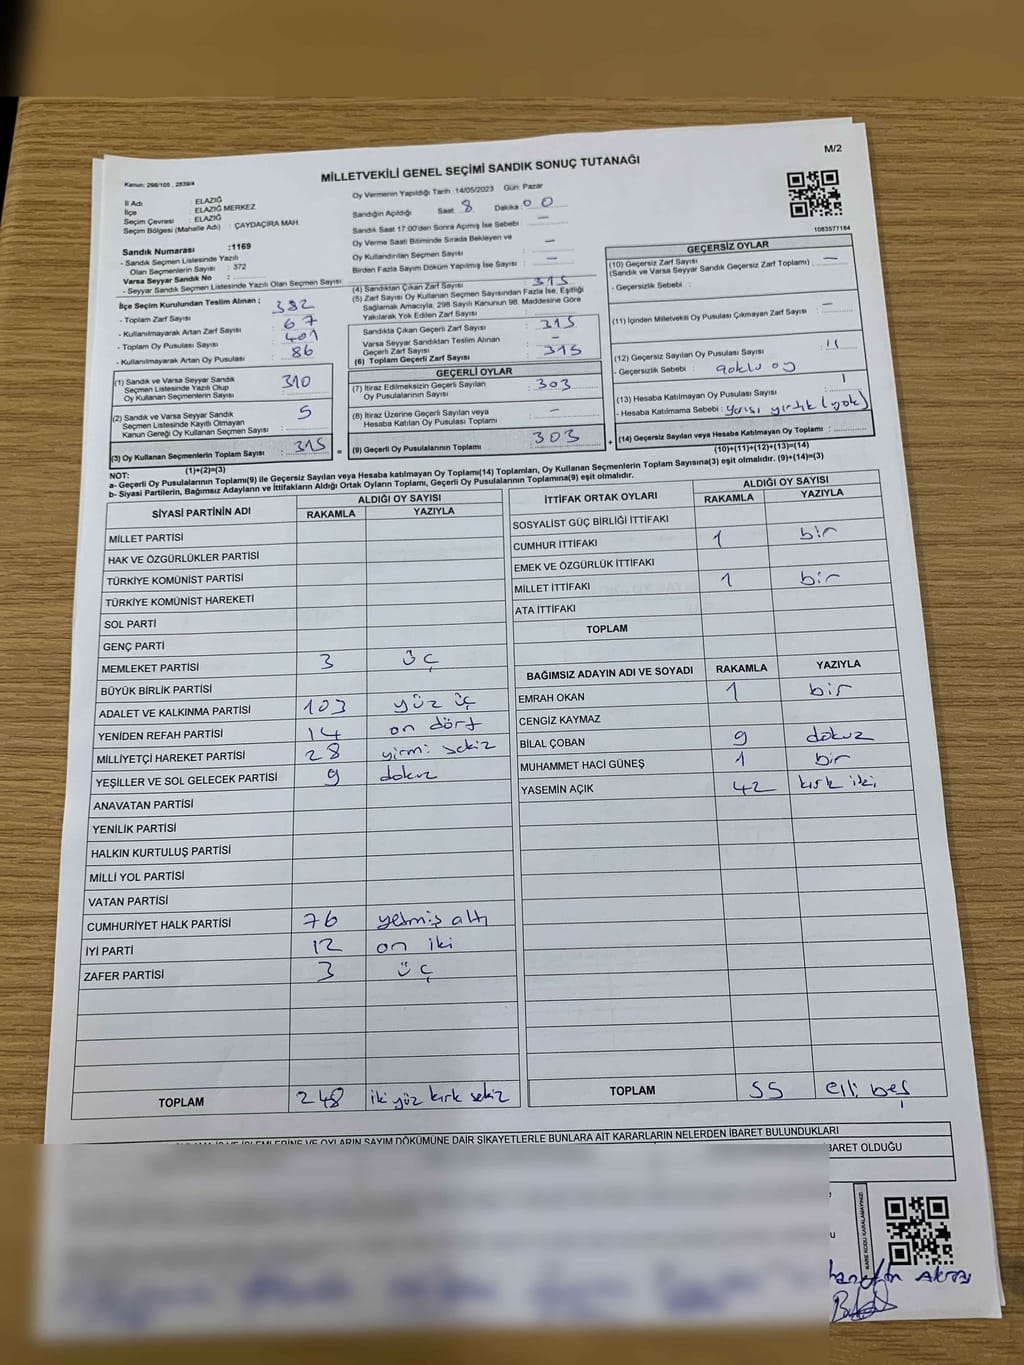 M/2
MİLLETVEKİLİ GENEL SEÇİMİ SANDIK SONUÇ TUTANAĞI
Kanun: 298/105 , 2839/4
İl Adı : ELAZIĞ
İlçe : ELAZIĞ MERKEZ
Seçim Çevresi : ELAZIĞ
Seçim Bölgesi (Mahalle Adı) : ÇAYDAÇIRA MAH.
Sandık Numarası :1169
- Sandık Seçmen Listesinde Yazılı
Olan Seçmenlerin Sayısı : 372
Varsa Seyyar Sandık No :
- Seyyar Sandık Seçmen Listesinde Yazılı Olan Seçmen Sayısı
Oy Vermenin Yapıldığı Tarih :14/05/2023 Gün: Pazar
Sandığın Açıldığı Saat 8 Dakika 00
Sandık Saat 17:00'den Sonra Açımış İse Sebebi : —
Oy Verme Saati Bitiminde Sırada Bekleyen ve
Oy Kullandırılan Seçmen Sayısı : —
Birden Fazla Sayım Döküm Yapılmış İse Sayısı : —
1083577184
İlçe Seçim Kurulundan Teslim Alınan ;
- Toplam Zarf Sayısı : 382
- Kullanılmayarak Artan Zarf Sayısı : 67
- Toplam Oy Pusulası Sayısı : 401
- Kullanılmayarak Artan Oy Pusulası : 86
(1) Sandık ve Varsa Seyyar Sandık
Seçmen Listesinde Yazılı Olup
Oy Kullanan Seçmenlerin Sayısı : 310
(2) Sandık ve Varsa Seyyar Sandık
Seçmen Listesinde Kayıtlı Olmayan
Kanun Gereği Oy Kullanan Seçmen Sayısı : 5
(3) Oy Kullanan Seçmenlerin Toplam Sayısı : 315
(1)+(2)=(3)
(4) Sandıktan Çıkan Zarf Sayısı : 315
(5) Zarf Sayısı Oy Kullanan Seçmen Sayısından Fazla İse, Eşitliği
Sağlamak Amacıyla, 298 Sayılı Kanunun 98. Maddesine Göre
Yakılarak Yok Edilen Zarf Sayısı :
Sandıkta Çıkan Geçerli Zarf Sayısı : 315
Varsa Seyyar Sandıktan Teslim Alınan
Geçerli Zarf Sayısı : —
(6) Toplam Geçerli Zarf Sayısı : 315
GEÇERLİ OYLAR
(7) İtiraz Edilmeksizin Geçerli Sayılan
Oy Pusulalarının Sayısı : 303
(8) İtiraz Üzerine Geçerli Sayılan veya
Hesaba Katılan Oy Pusulası Toplamı : —
(9) Geçerli Oy Pusulalarının Toplamı : 303
GEÇERSİZ OYLAR
(10) Geçersiz Zarf Sayısı
(Sandık ve Varsa Seyyar Sandık Geçersiz Zarf Toplamı) : —
- Geçersizlik Sebebi :
(11) İçinden Milletvekili Oy Pusulası Çıkmayan Zarf Sayısı : —
(12) Geçersiz Sayılan Oy Pusulası Sayısı : 11
- Geçersizlik Sebebi : çoklu oy
(13) Hesaba Katılmayan Oy Pusulası Sayısı : 1
- Hesaba Katılmama Sebebi : Yarısı yırtık (yok)
(14) Geçersiz Sayılan veya Hesaba Katılmayan Oy Toplamı :
(10)+(11)+(12)+(13)=(14)
NOT:
a- Geçerli Oy Pusulalarının Toplamı(9) ile Geçersiz Sayılan veya Hesaba katılmayan Oy Toplamı(14) Toplamları, Oy Kullanan Seçmenlerin Toplam Sayısına(3) eşit olmalıdır. (9)+(14)=(3)
b- Siyasi Partilerin, Bağımsız Adayların ve İttifakların Aldığı Ortak Oyların Toplamı, Geçerli Oy Pusulalarının Toplamına(9) eşit olmalıdır.
SİYASİ PARTİNİN ADI ALDIĞI OY SAYISI
RAKAMLA YAZIYLA
MİLLET PARTİSİ
HAK VE ÖZGÜRLÜKLER PARTİSİ
TÜRKİYE KOMÜNİST PARTİSİ
TÜRKİYE KOMÜNİST HAREKETİ
SOL PARTİ
GENÇ PARTİ
MEMLEKET PARTİSİ 3 üç
BÜYÜK BİRLİK PARTİSİ
ADALET VE KALKINMA PARTİSİ 103 yüz üç
YENİDEN REFAH PARTİSİ 14 on dört
MİLLİYETÇİ HAREKET PARTİSİ 28 yirmi sekiz
YEŞİLLER VE SOL GELECEK PARTİSİ 9 dokuz
ANAVATAN PARTİSİ
YENİLİK PARTİSİ
HALKIN KURTULUŞ PARTİSİ
MİLLİ YOL PARTİSİ
VATAN PARTİSİ
CUMHURİYET HALK PARTİSİ 76 yetmiş altı
İYİ PARTİ 12 on iki
ZAFER PARTİSİ 3 üç
TOPLAM 248 iki yüz kırk sekiz
İTTİFAK ORTAK OYLARI ALDIĞI OY SAYISI
RAKAMLA YAZIYLA
SOSYALİST GÜÇ BİRLİĞİ İTTİFAKI
CUMHUR İTTİFAKI 1 bir
EMEK VE ÖZGÜRLÜK İTTİFAKI
MİLLET İTTİFAKI 1 bir
ATA İTTİFAKI
TOPLAM
BAĞIMSIZ ADAYIN ADI VE SOYADI RAKAMLA YAZIYLA
EMRAH OKAN 1 bir
CENGİZ KAYMAZ
BİLAL ÇOBAN 9 dokuz
MUHAMMET HACİ GÜNEŞ 1 bir
YASEMİN AÇIK 42 kırk iki
TOPLAM 55 elli beş
OYLARIN SAYIM DÖKÜMÜNE DAİR ŞİKAYETLERLE BUNLARA AİT KARARLARIN NELERDEN İBARET BULUNDUKLARI
İBARET OLDUĞU
KARE KODU KARALAMAYINIZ!